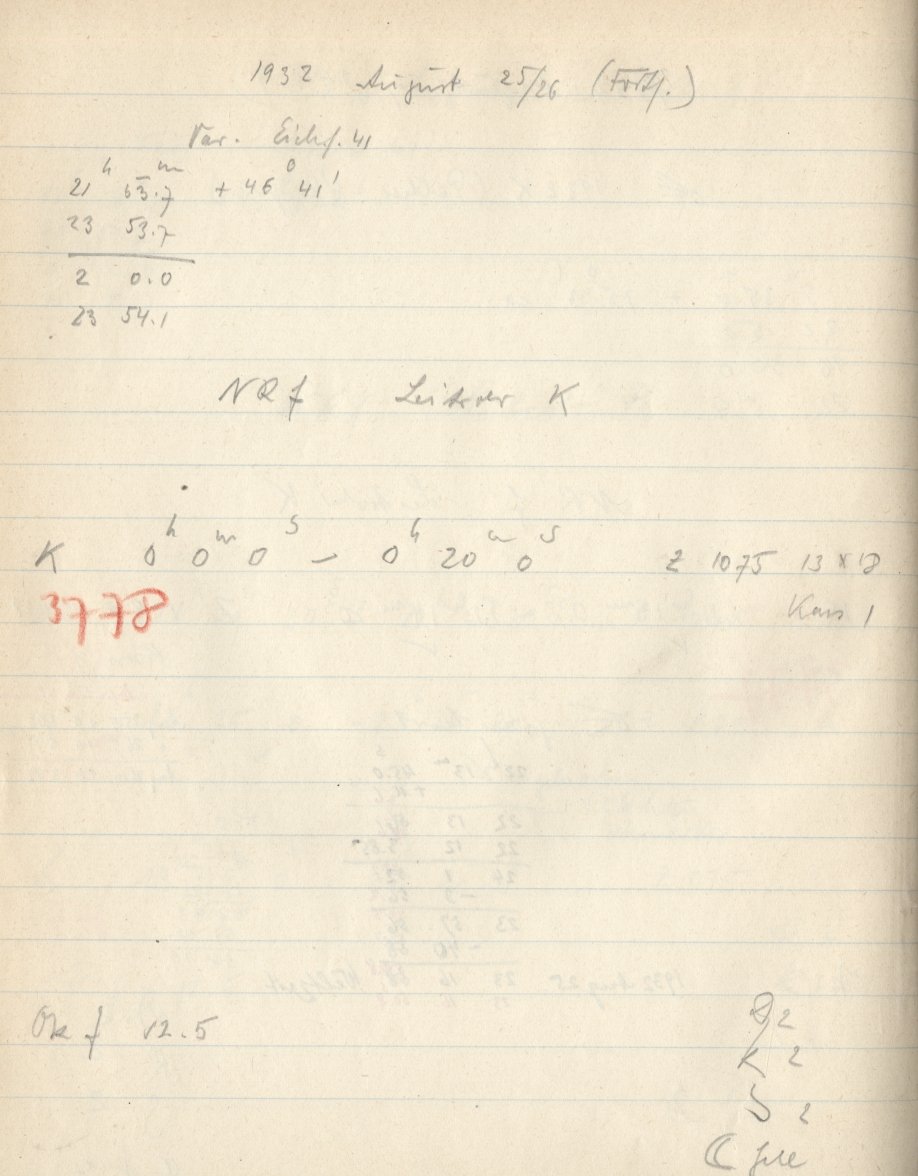 1932 August 25/26 (Fortf.)
Var. Eichf. 41
21 h 53.7 m + 46° 41'
23 53.7
2 0.0
23 54.1
NQ f Leitstern K
K 0 h 0 m 0 S — 0 h 20 m 0 S Z 1075 13 x 18
3778 Kass 1
Ok f 12.5
2
K 2
S 2